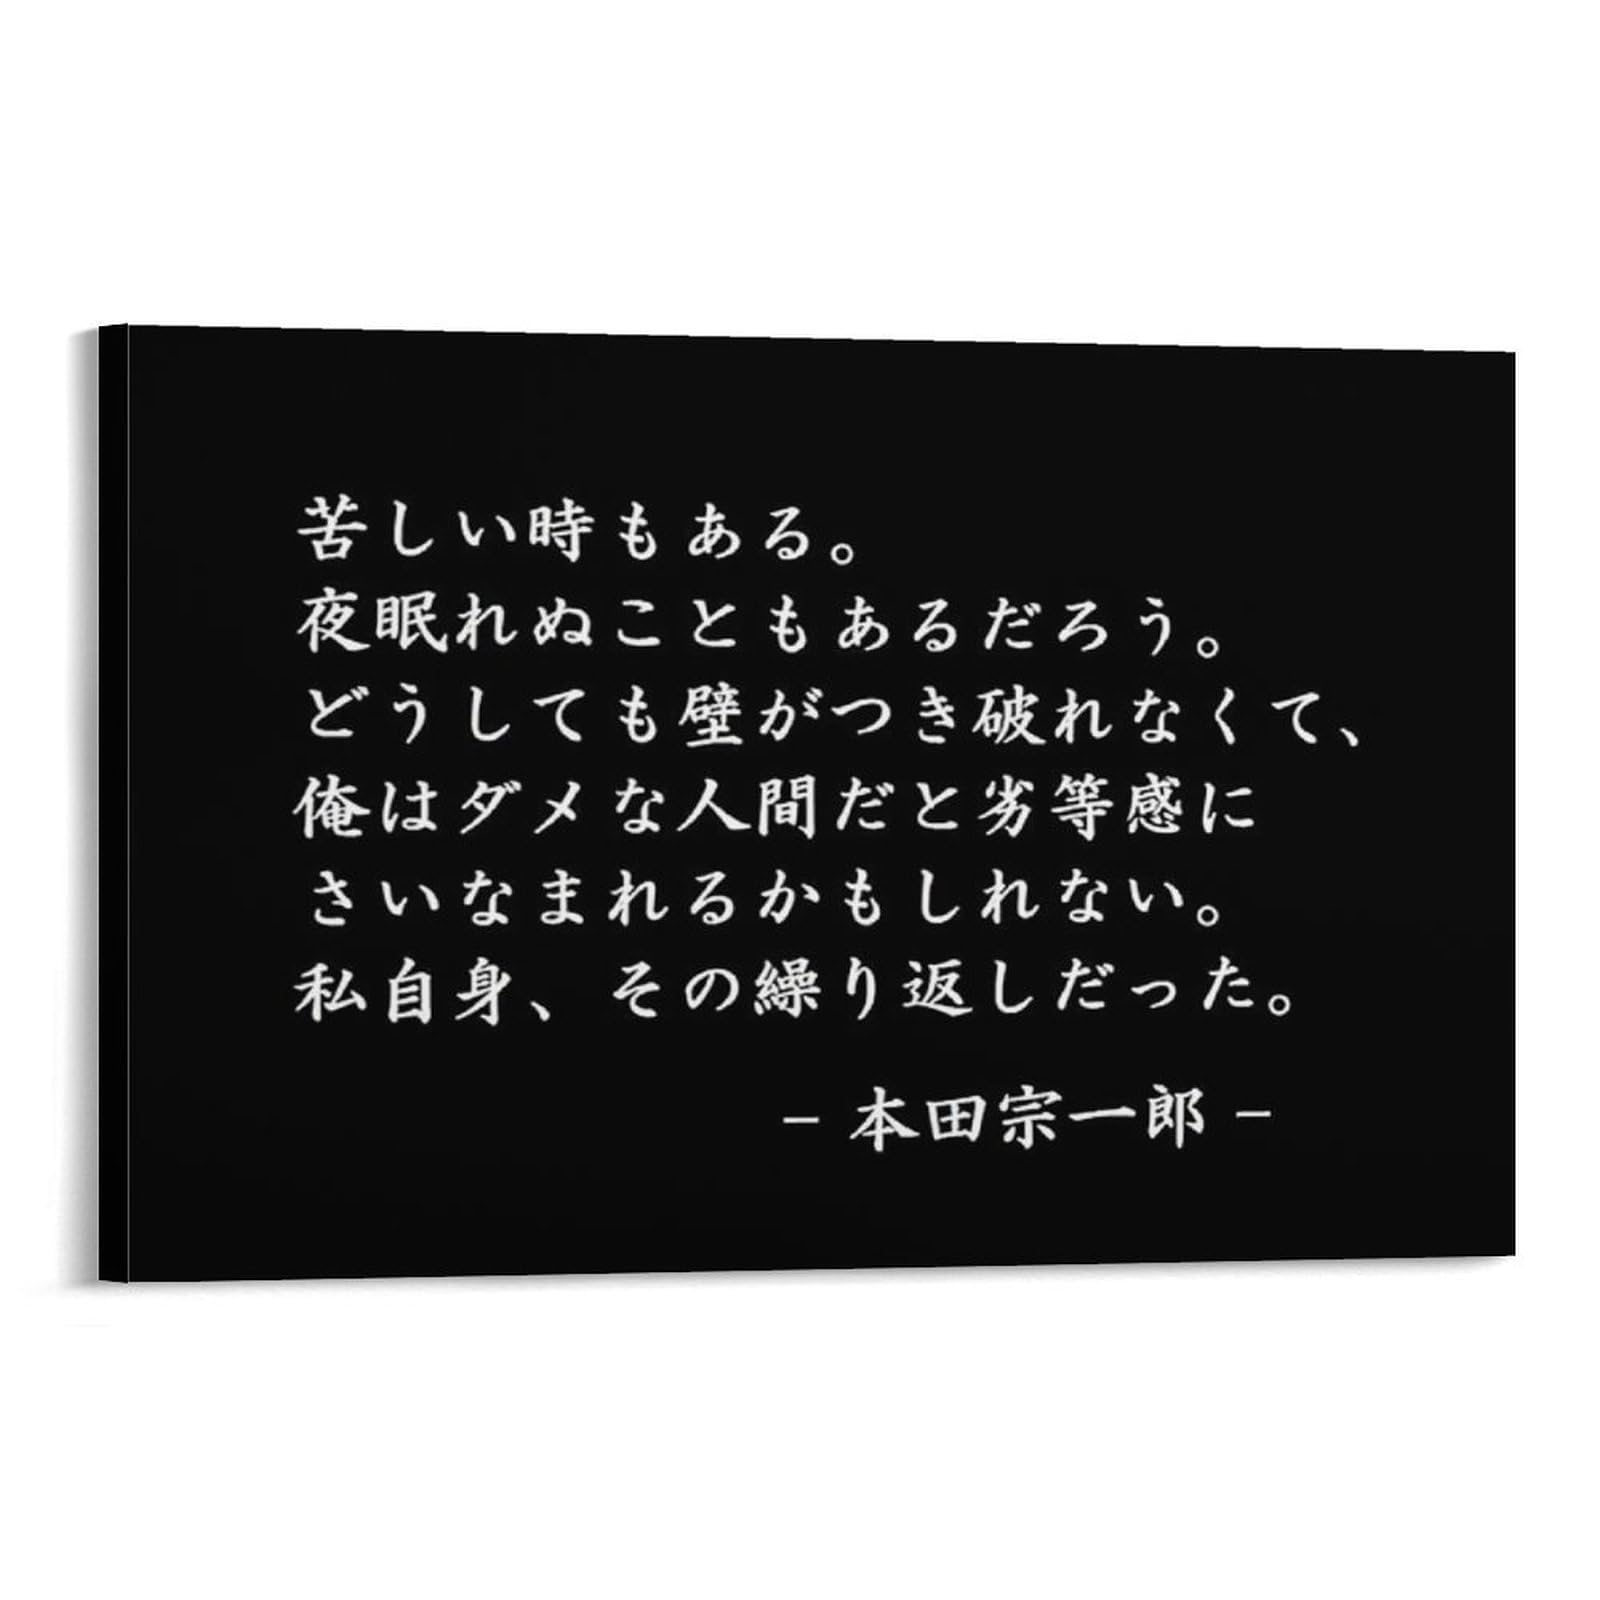 苦しい時もある。
夜眠れぬこともあるだろう。
どうしても壁がつき破れなくて、
俺はダメな人間だと劣等感に
さいなまれるかもしれない。
私自身、その繰り返しだった。
– 本田宗一郎 –